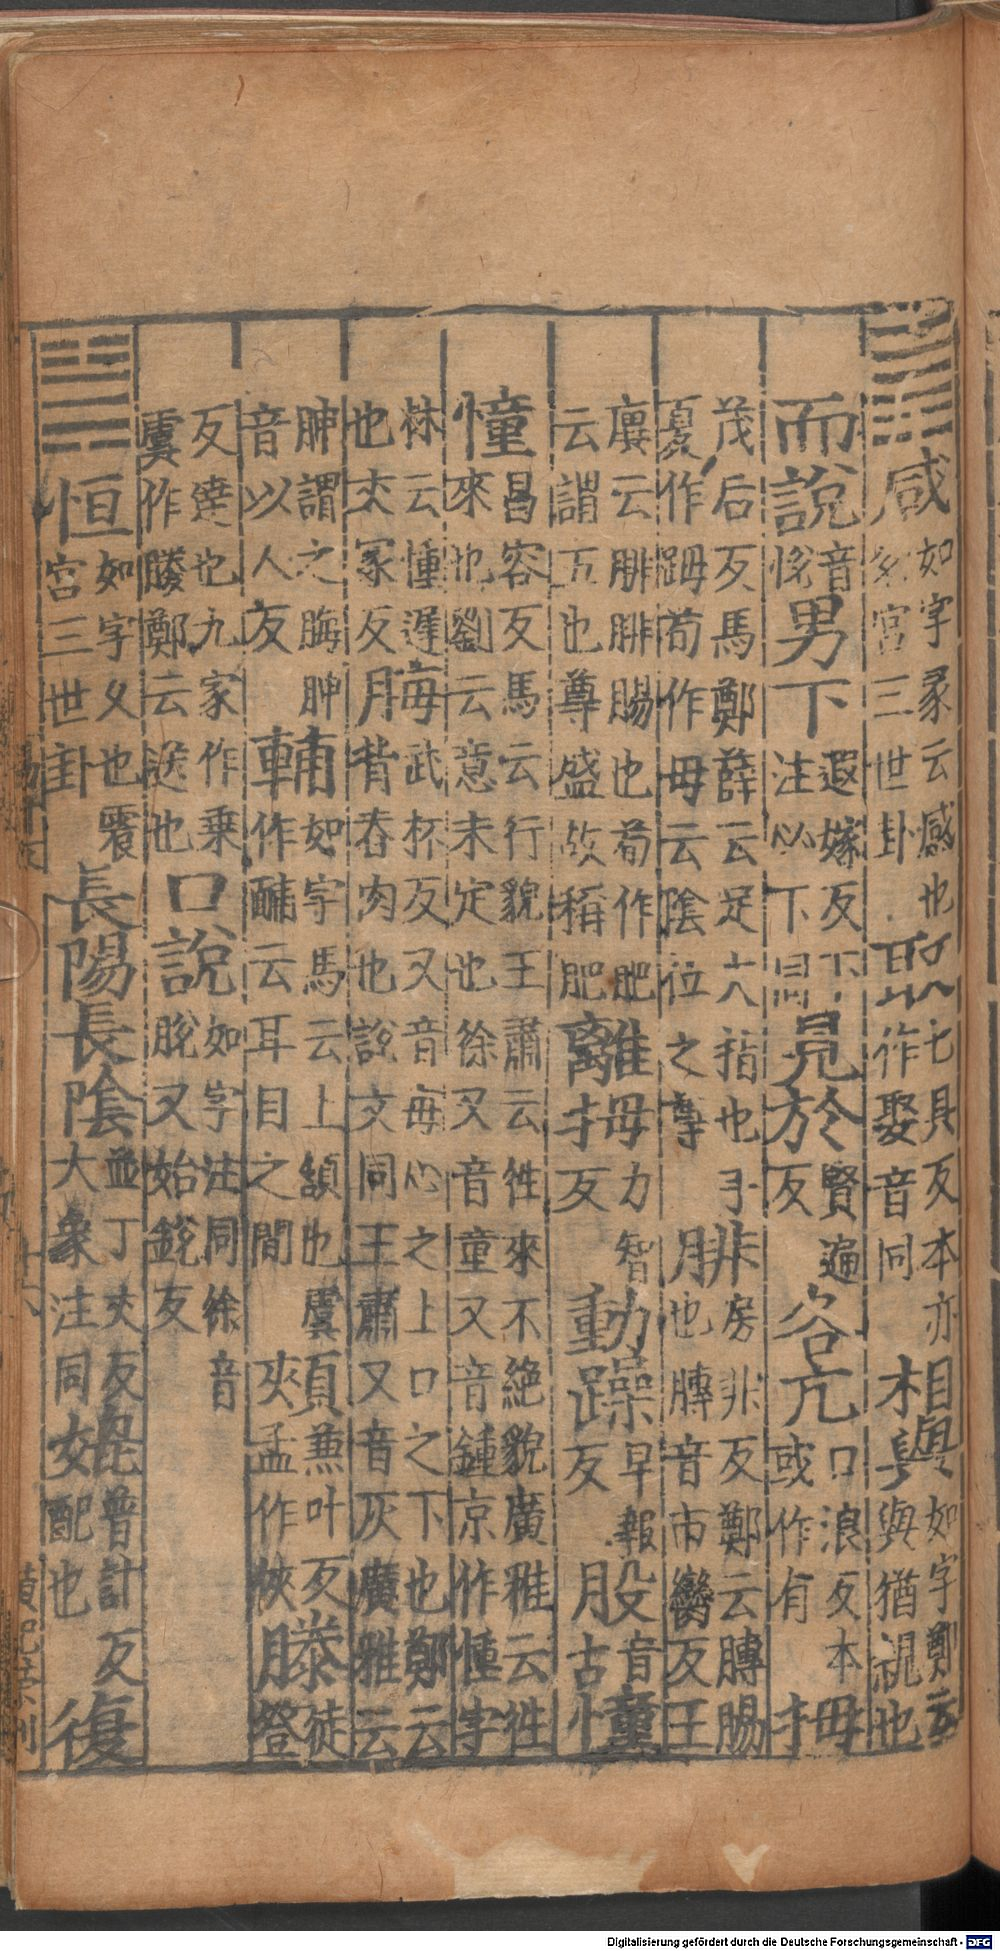 咸如字彖云感也兌宮三世卦取七具反本亦作娶音同相與如字鄭云與猶親也
而說音悅男下遐嫁反下注必下同見於賢遍反谷亢口浪反本或作有拇
茂后反馬鄭薛云足大指也子夏作䟢荀作母云陰位之尊腓房非反鄭云膊腸也膊音市臠反王
廙云腓腓腸也荀作肥云謂五也尊盛故稱肥離拇力智反動躁早報反股音古憧
憧昌容反馬云行貌王肅云往來不絕貌廣雅云往來也劉云意未定也徐又音童又音鍾京作憧字
林云憧遲也丈冢反脢武杯反又音每心之上口之下也鄭云背脊肉也說文同王肅又音灰廣雅云
胂謂之脢胂音以人反輔如字馬云上頷也虞作酺云耳目之間頰兼叶反孟作俠滕徒登
反達也九家作乗虞作媵鄭云送也口說如字注同徐音脫又始銳反
恒如字久也震宮三世卦長陽長陰並丁丈反大象注同媲普計反女配也復
Digitalisierung gefördert durch die Deutsche Forschungsgemeinschaft - DFG